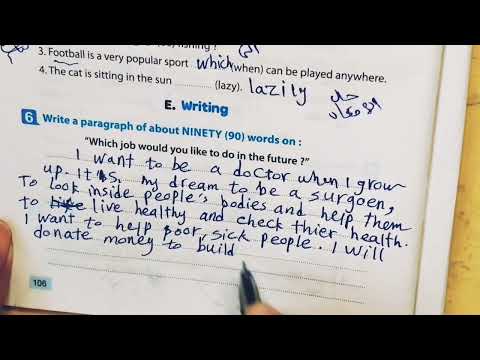 fishing ?
3. Football is a very popular sport which (when) can be played anywhere.
4. The cat is sitting in the sun lazily (lazy).
E. Writing
6 Write a paragraph of about NINETY (90) words on :
"Which job would you like to do in the future ?"
I want to be a doctor when I grow
up. It is my dream to be a surgoen,
To look inside people's bodies and help them
to live healthy and check thier health.
I want to help poor, sick people. I will
donate money to build
106